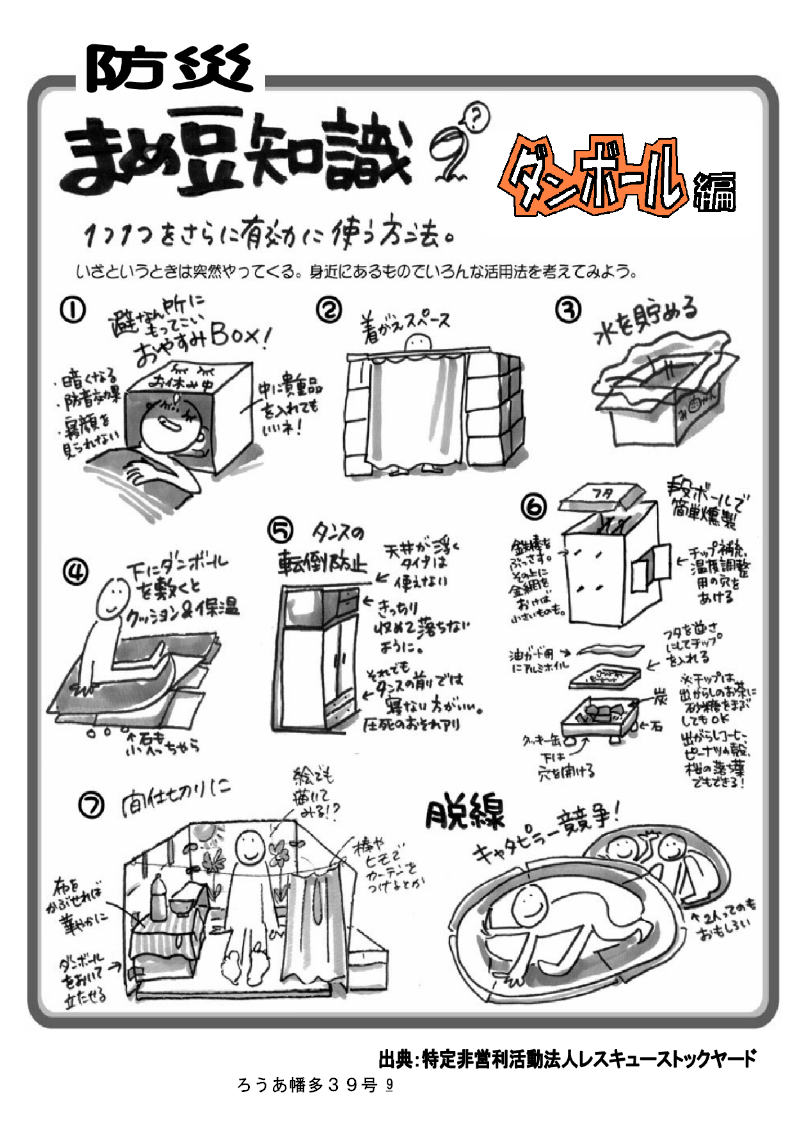 防災
まめ豆知識
?
ダンボール編
1つ1つをさらに有効に使う方法。
いざというときは突然やってくる。身近にあるものでいろんな活用法を考えてみよう。
①
避なん所に
もってこい
おやすみBox!
・暗くなる
・防音効果
・寝顔を
見られない
お休み中
中に貴重品
を入れても
いいネ!
②
着がえスペース
③
水を貯める
みかん
④
下にダンボール
を敷くと
クッション&保温
↑石も
へっちゃら
⑤
タンスの
転倒防止
天井が浮く
タイプは
使えない
きっちり
収めて落ちない
ように。
それでも
タンスの前では
寝ない方がいい。
圧死のおそれアリ
⑥
段ボールで
簡単燻製
フタ
鉄棒を
ぶっさす。
その上に
金網を
おけば
小さいものも。
チップ補充、
温度調整
用の穴を
あける
油ガード用
にアルミホイル
フタを逆さ
にしてチップ
を入れる
炭
石
クッキー缶
下は
穴を開ける
※チップは
出がらしのお茶に
砂糖をまぶ
してもOK
出がらしコーヒー、
ピーナツの殻、
桜の落ち葉
でもできる!
⑦
間仕切りに
絵でも
描いて
みる!?
棒や
ヒモで
カーテンで
つけるとか
布を
かぶせれば
華やかに
ダンボール
をおいて
立たせる
脱線
キャタピラー競争!
↑2人ってのも
おもしろい
出典:特定非営利活動法人レスキューストックヤード
ろうあ幡多39号 9